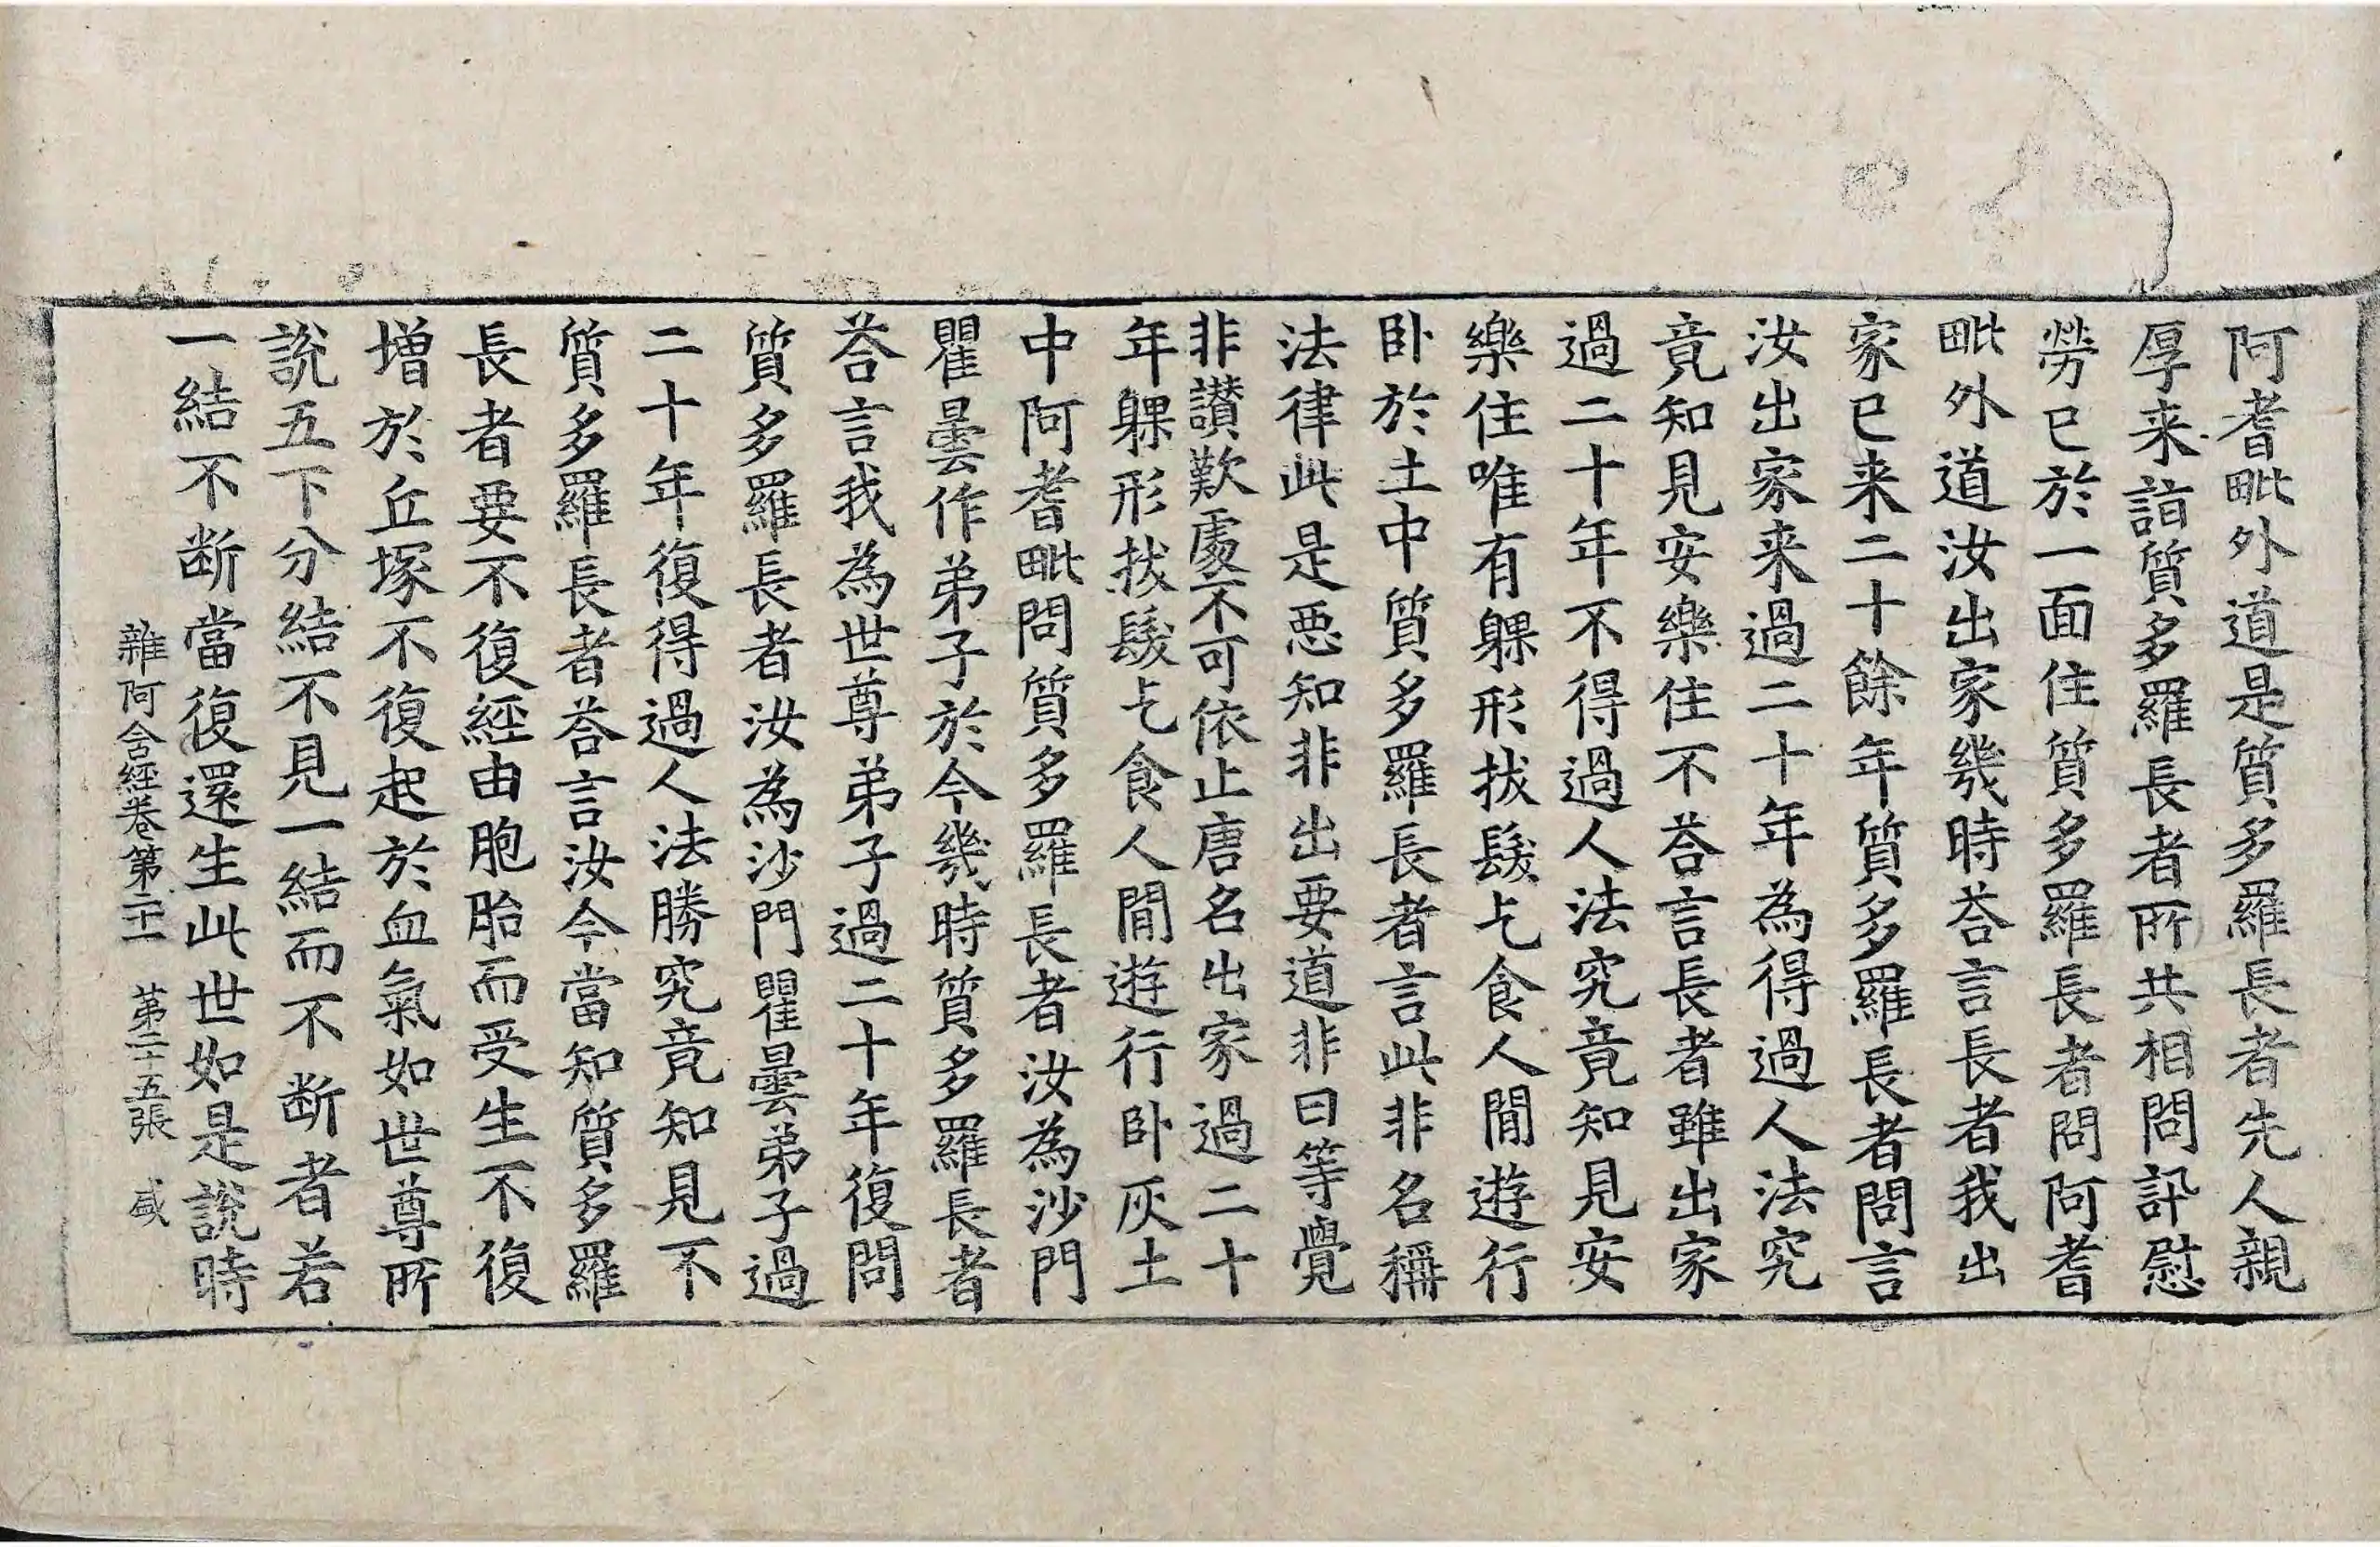 阿耆毗外道是質多羅長者先人親
厚来詣質多羅長者所共相問訊慰
勞已於一面住質多羅長者問阿耆
毗外道汝出家幾時荅言長者我出
家已来二十餘年質多羅長者問言
汝出家来過二十年為得過人法究
竟知見安樂住不荅言長者雖出家
過二十年不得過人法究竟知見安
樂住唯有躶形拔髮乞食人間遊行
卧於土中質多羅長者言此非名稱
法律此是惡知非出要道非曰等覺
非讃歎處不可依止唐名出家過二十
年躶形拔髮乞食人間遊行卧灰土
中阿耆毗問質多羅長者汝為沙門
瞿曇作弟子於今幾時質多羅長者
荅言我為世尊弟子過二十年復問
質多羅長者汝為沙門瞿曇弟子過
二十年復得過人法勝究竟知見不
質多羅長者荅言汝今當知質多羅
長者要不復經由胞胎而受生不復
增於丘塚不復起於血氣如世尊所
說五下分結不見一結而不断者若
一結不断當復還生此世如是說時
雜阿含經卷第二十一 第二十五張 咸